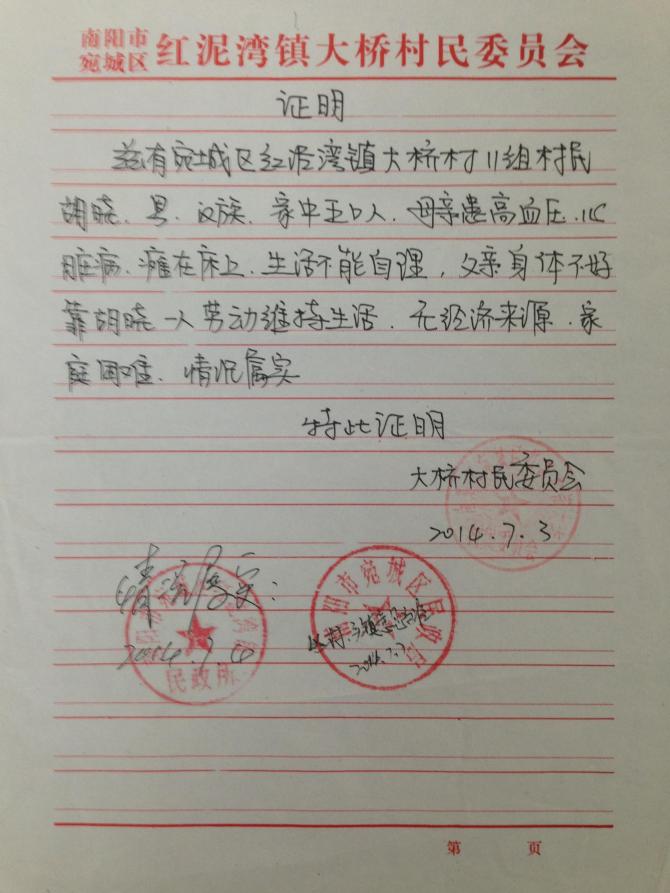 南阳市
宛城区 红泥湾镇大桥村民委员会
证明
兹有宛城区红泥湾镇大桥村11组村民
胡晓、男、汉族、家中五口人、母亲患高血压、心
脏病、瘫在床上、生活不能自理,父亲身体不好
靠胡晓一人劳动维持生活、无经济来源、家
庭困难、情况属实
特此证明
大桥村民委员会
2014.7.3
情况属实:
2014.7
民政所
南阳市宛城区民政局
乡镇意见
2014.7.7
第 页